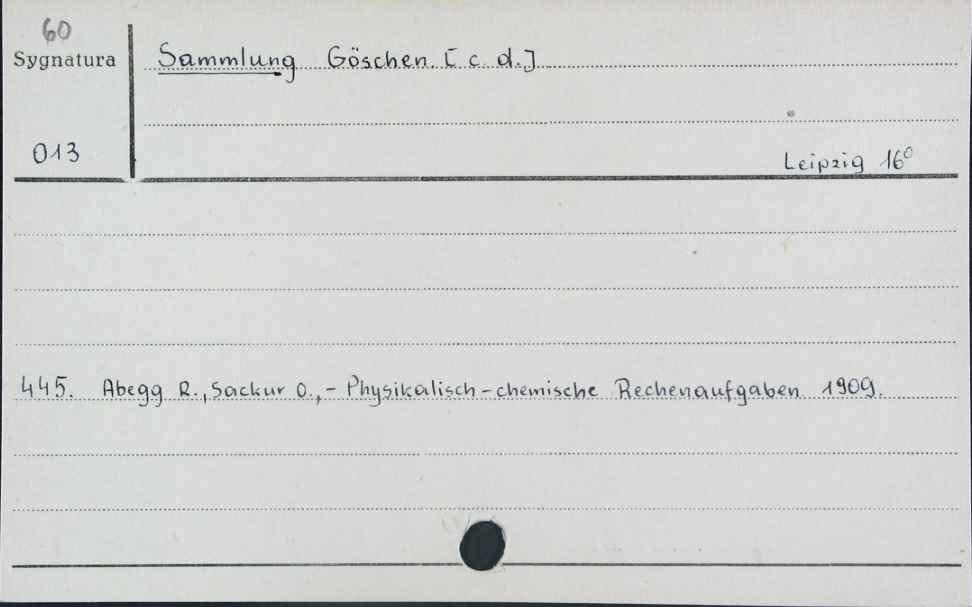 60
Sygnatura
Sammlung Göschen [c. d.]
013
Leipzig 16°
445. Abegg R., Sackur O., - Physikalisch-chemische Rechenaufgaben 1909.